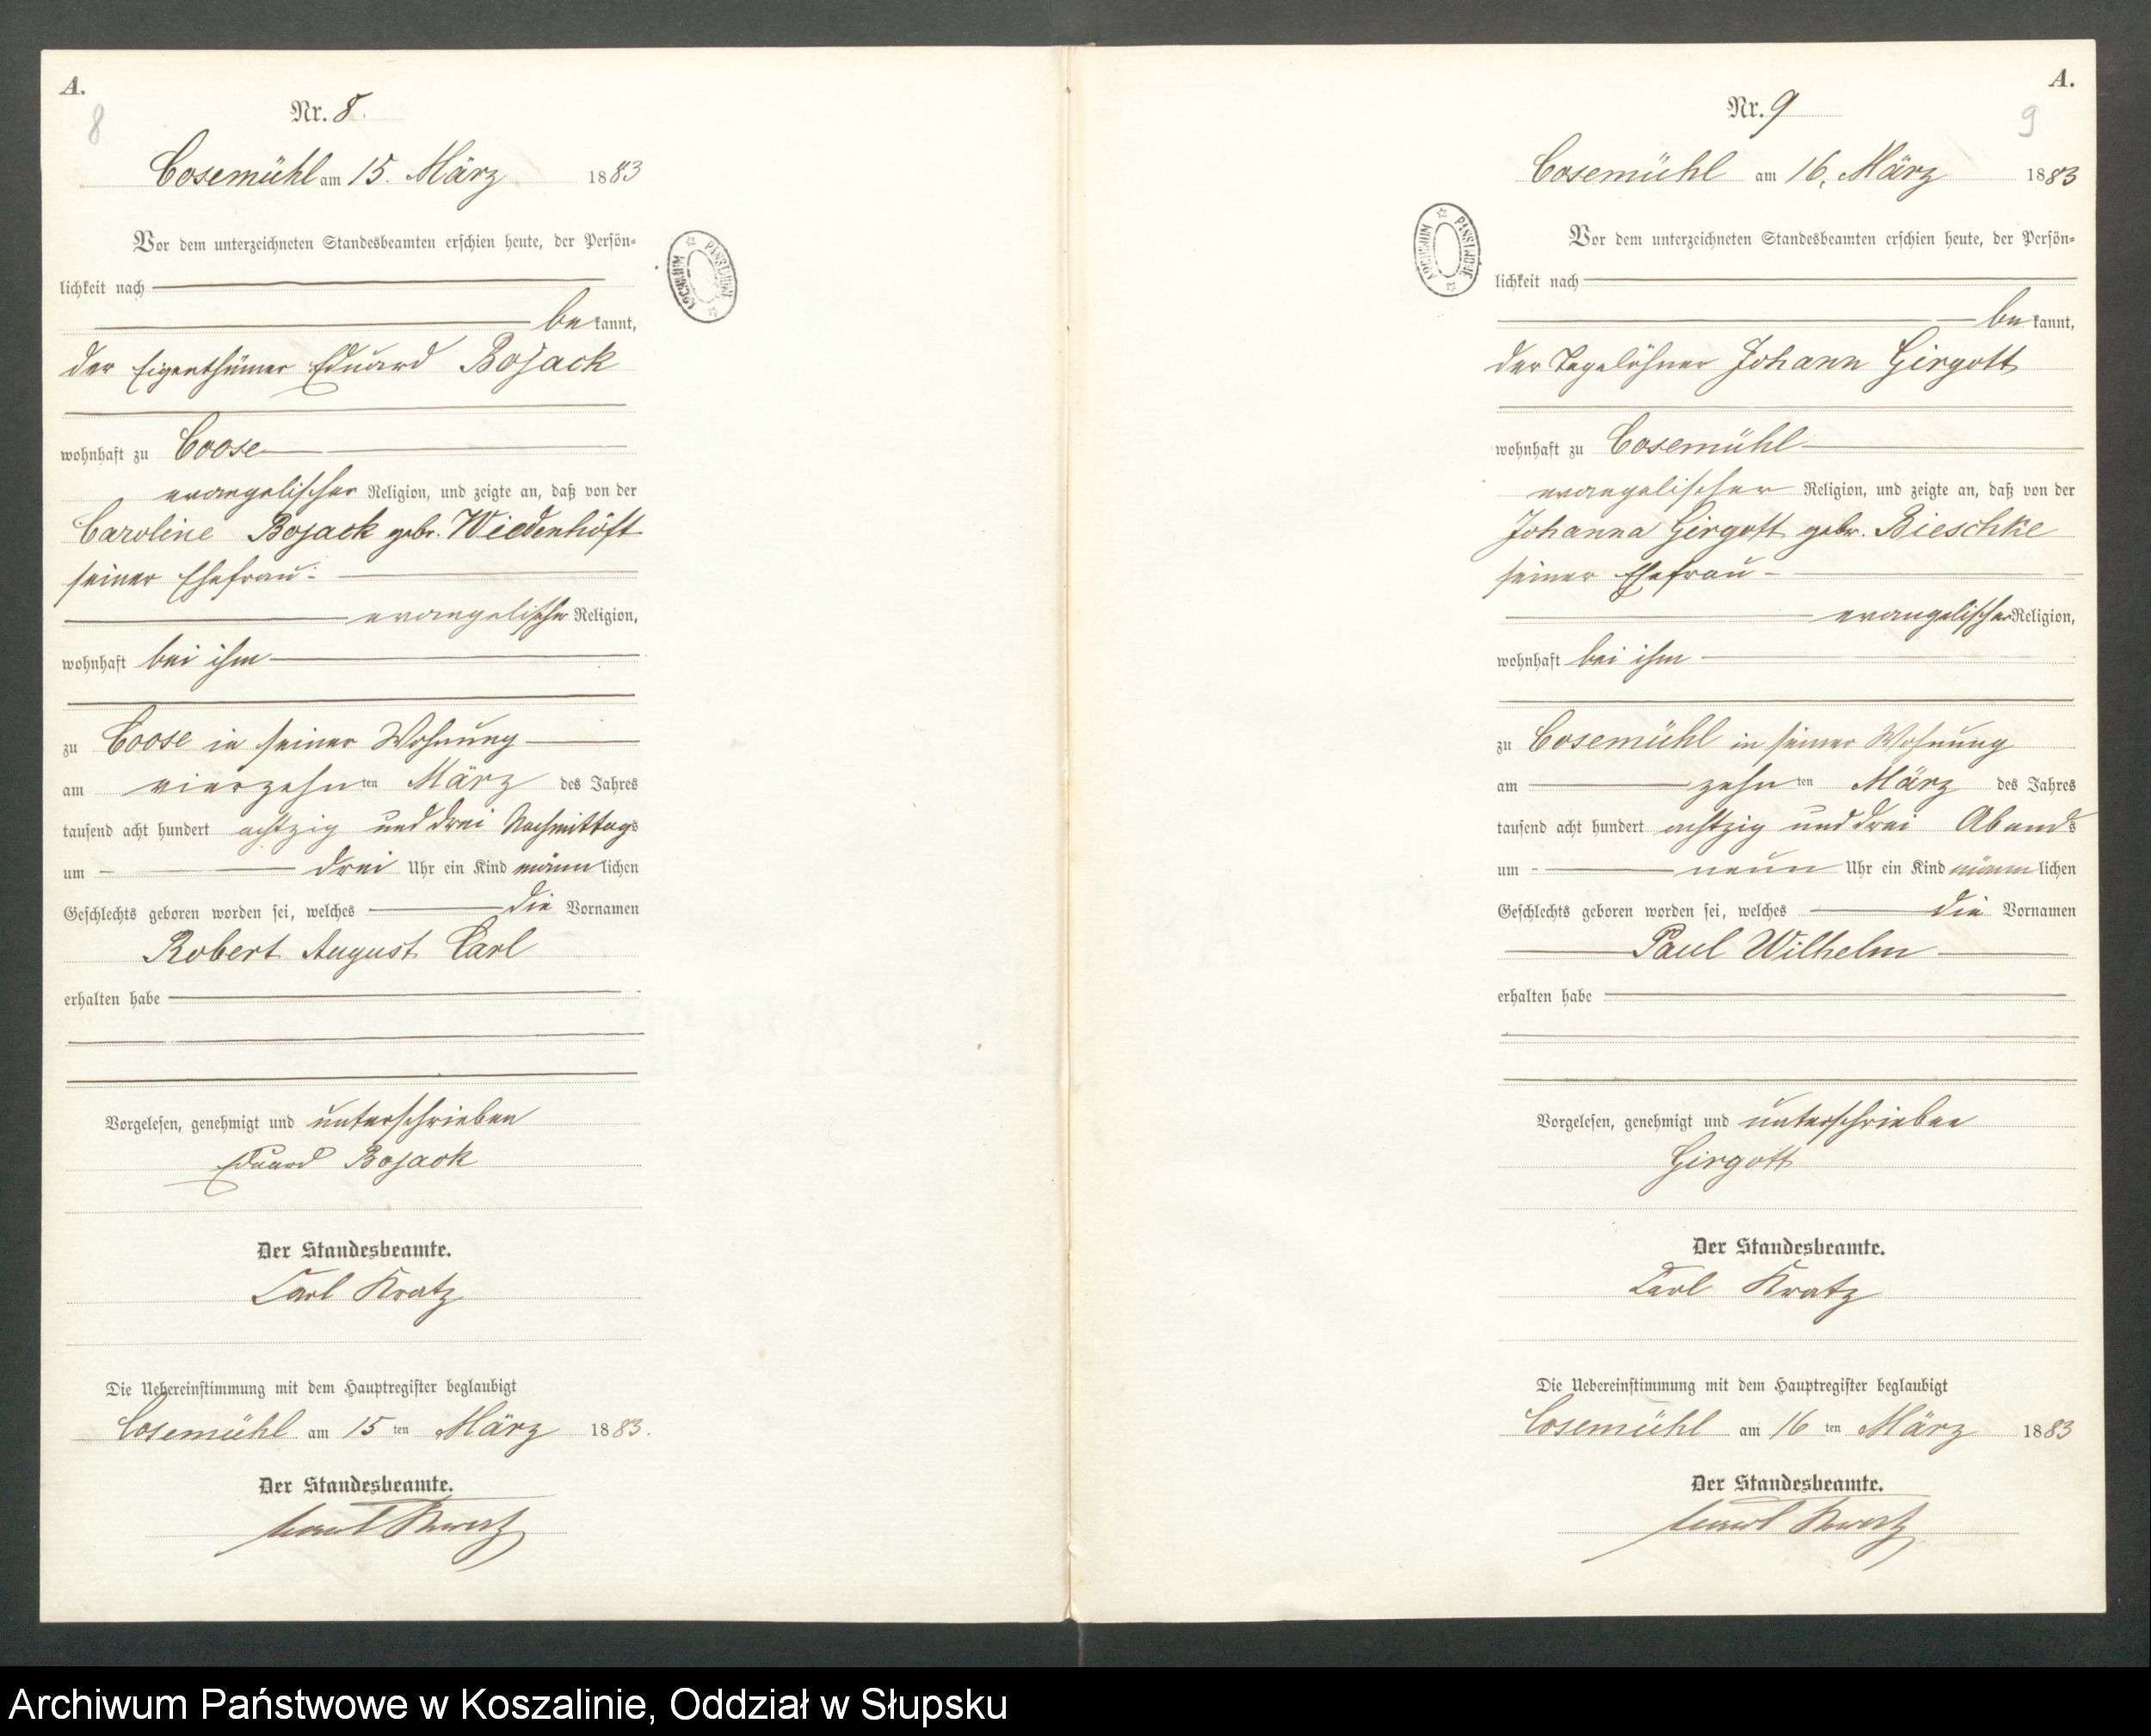 A.
8
Nr. 8.
Cosemühl am 15. März 1883
Vor dem unterzeichneten Standesbeamten erschien heute, der Persön-
lichkeit nach
bekannt,
der Eigenthümer Eduard Bojack
wohnhaft zu Coose
evangelischer Religion, und zeigte an, daß von der
Caroline Bojack gebr. Wiedenhöft
seiner Ehefrau
evangelischer Religion,
wohnhaft bei ihm
zu Coose in seiner Wohnung
am vierzehnten März des Jahres
tausend acht hundert achtzig und drei Nachmittags
um drei Uhr ein Kind männlichen
Geschlechts geboren worden sei, welches die Vornamen
Robert August Carl
erhalten habe
Vorgelesen, genehmigt und unterschrieben
Eduard Bojack
Der Standesbeamte.
Carl Kratz
Die Uebereinstimmung mit dem Hauptregister beglaubigt
Cosemühl am 15ten März 1883.
Der Standesbeamte.
Carl Kratz
ARCHIWUM PAŃSTWOWE
A.
9
Nr. 9
Cosemühl am 16. März 1883
Vor dem unterzeichneten Standesbeamten erschien heute, der Persön-
lichkeit nach
bekannt,
der Tagelöhner Johann Girgott
wohnhaft zu Cosemühl
evangelischer Religion, und zeigte an, daß von der
Johanna Girgott gebr. Bieschke
seiner Ehefrau
evangelischer Religion,
wohnhaft bei ihm
zu Cosemühl in seiner Wohnung
am zehnten März des Jahres
tausend acht hundert achtzig und drei Abends
um neun Uhr ein Kind männlichen
Geschlechts geboren worden sei, welches die Vornamen
Paul Wilhelm
erhalten habe
Vorgelesen, genehmigt und unterschrieben
Girgott
Der Standesbeamte.
Carl Kratz
Die Uebereinstimmung mit dem Hauptregister beglaubigt
Cosemühl am 16ten März 1883
Der Standesbeamte.
Carl Kratz
ARCHIWUM PAŃSTWOWE
Archiwum Państwowe w Koszalinie, Oddział w Słupsku